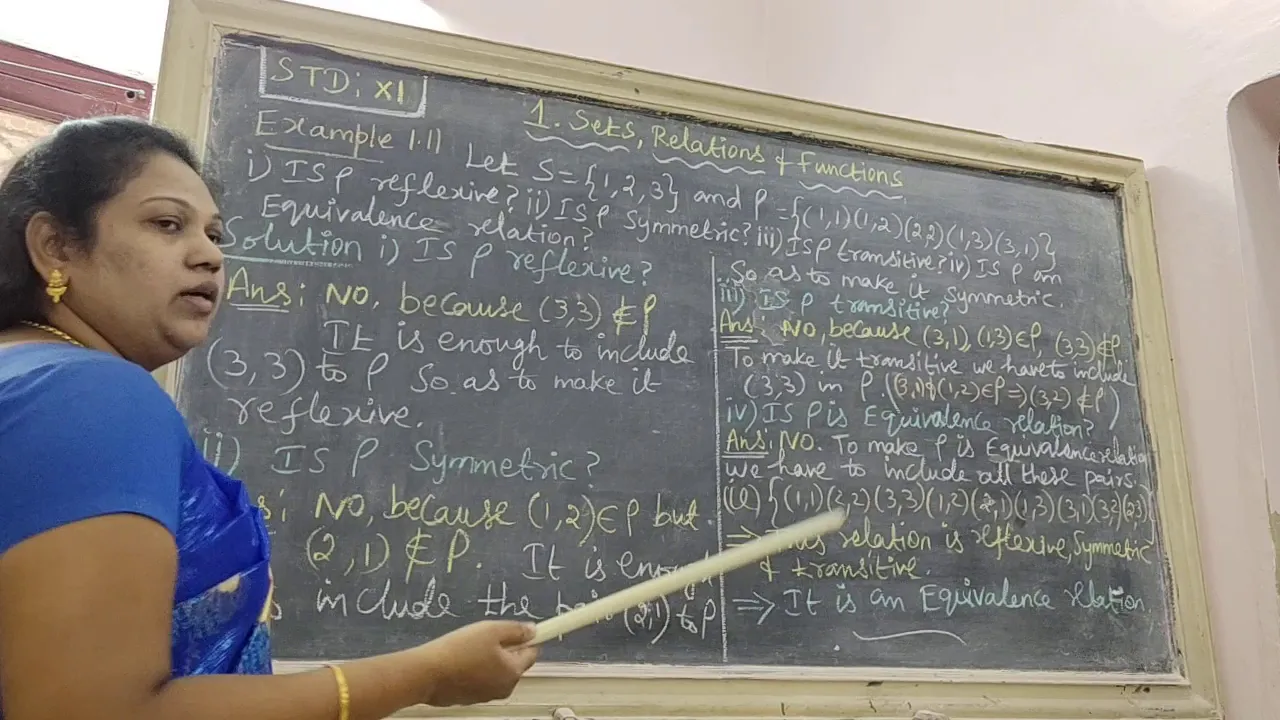 STD: XI
1. Sets, Relations & Functions
Example 1.11 Let S = {1,2,3} and ρ = {(1,1)(1,2)(2,2)(1,3)(3,1)}
i) IS ρ reflexive? ii) IS ρ Symmetric? iii) IS ρ transitive? iv) IS ρ an
Equivalence relation?
Solution i) IS ρ reflexive?
Ans: NO, because (3,3) ∉ ρ
It is enough to include
(3,3) to ρ So as to make it
reflexive.
ii) IS ρ Symmetric?
NO, because (1,2) ∈ ρ but
(2,1) ∉ ρ. It is enough
include the pair (2,1) to ρ
So as to make it Symmetric.
iii) IS ρ transitive?
Ans: NO, because (3,1), (1,3) ∈ ρ, (3,3) ∉ ρ
To make it transitive we have to include
(3,3) in ρ. ((3,1) & (1,2) ∈ ρ ⇒ (3,2) ∉ ρ)
iv) IS ρ is Equivalence relation?
Ans: NO. To make ρ is Equivalence relation
we have to include all these pairs.
{(1,1)(2,2)(3,3)(1,2)(2,1)(1,3)(3,1)(3,2)(2,3)}
⇒ This relation is reflexive, Symmetric
& transitive.
⇒ It is an Equivalence relation.